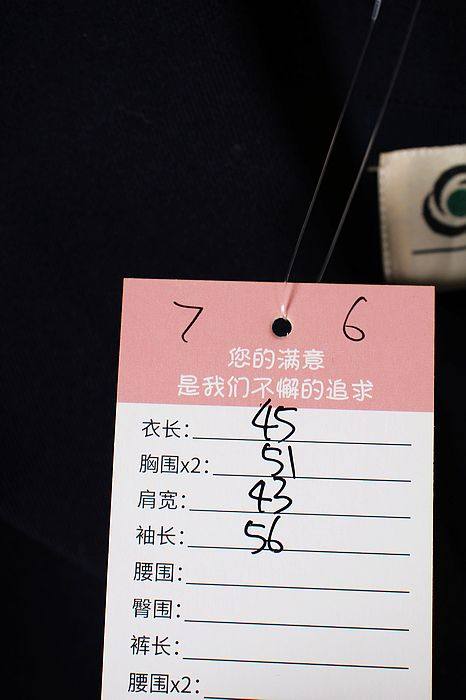 7 6
您的满意
是我们不懈的追求
衣长: 45
胸围x2: 51
肩宽: 43
袖长: 56
腰围:
臀围:
裤长:
腰围x2: